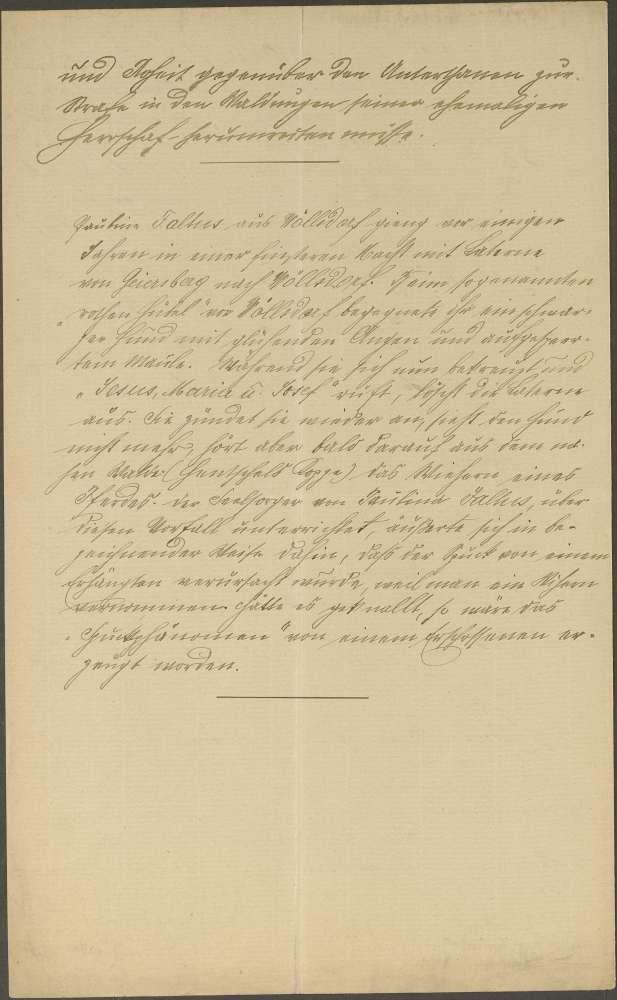 und Roheit gegenüber den Unterthanen zur
Strafe in den Waldungen seiner ehemaligen
Herrschaft herumreiten müsse.
Pauline Faltus aus Völlsdorf gieng vor einigen
Jahren in einer finsteren Nacht mit Laterne
von Geiersberg nach Völlsdorf. Beim sogenannten
"rothen Hübel" vor Völlsdorf begegnete ihr ein schwar-
zer Hund mit glühenden Augen und aufgesperr-
tem Maule. Während sie sich nun bekreuzt und
"Jesus, Maria u. Josef" ruft, löscht die Laterne
aus. Sie zündet sie wieder an, sieht den Hund
nicht mehr, hört aber bald darauf aus dem na-
hen Walde (Hentschels Koppe) das Wiehern eines
Pferdes. Der Seelsorger von Paulina Faltus, über
diesen Vorfall unterrichtet, äußerte sich in be-
zeichnender Weise dahin, daß der Spuck von einem
Erhängten verursacht wurde, weil man ein Wiehern
vernommen. Hätte es geknallt, so wäre das
"Spuckphänomen" von einem Erschossenen er-
zeugt worden.